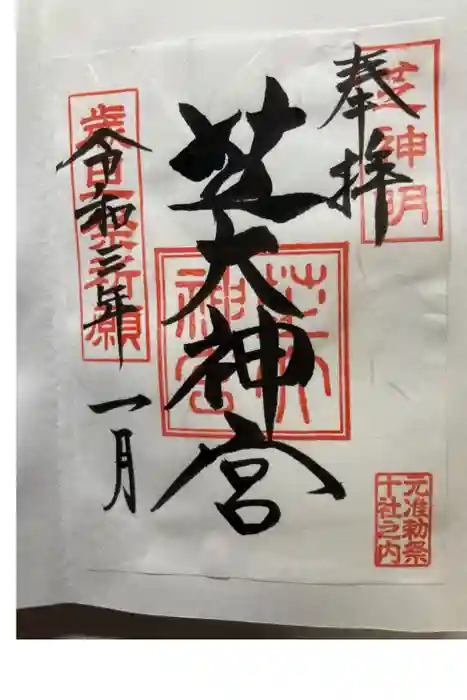 奉拝
芝神明
芝大神宮
芝大
神宮
令和三年
一月
元准勅祭
十社之内